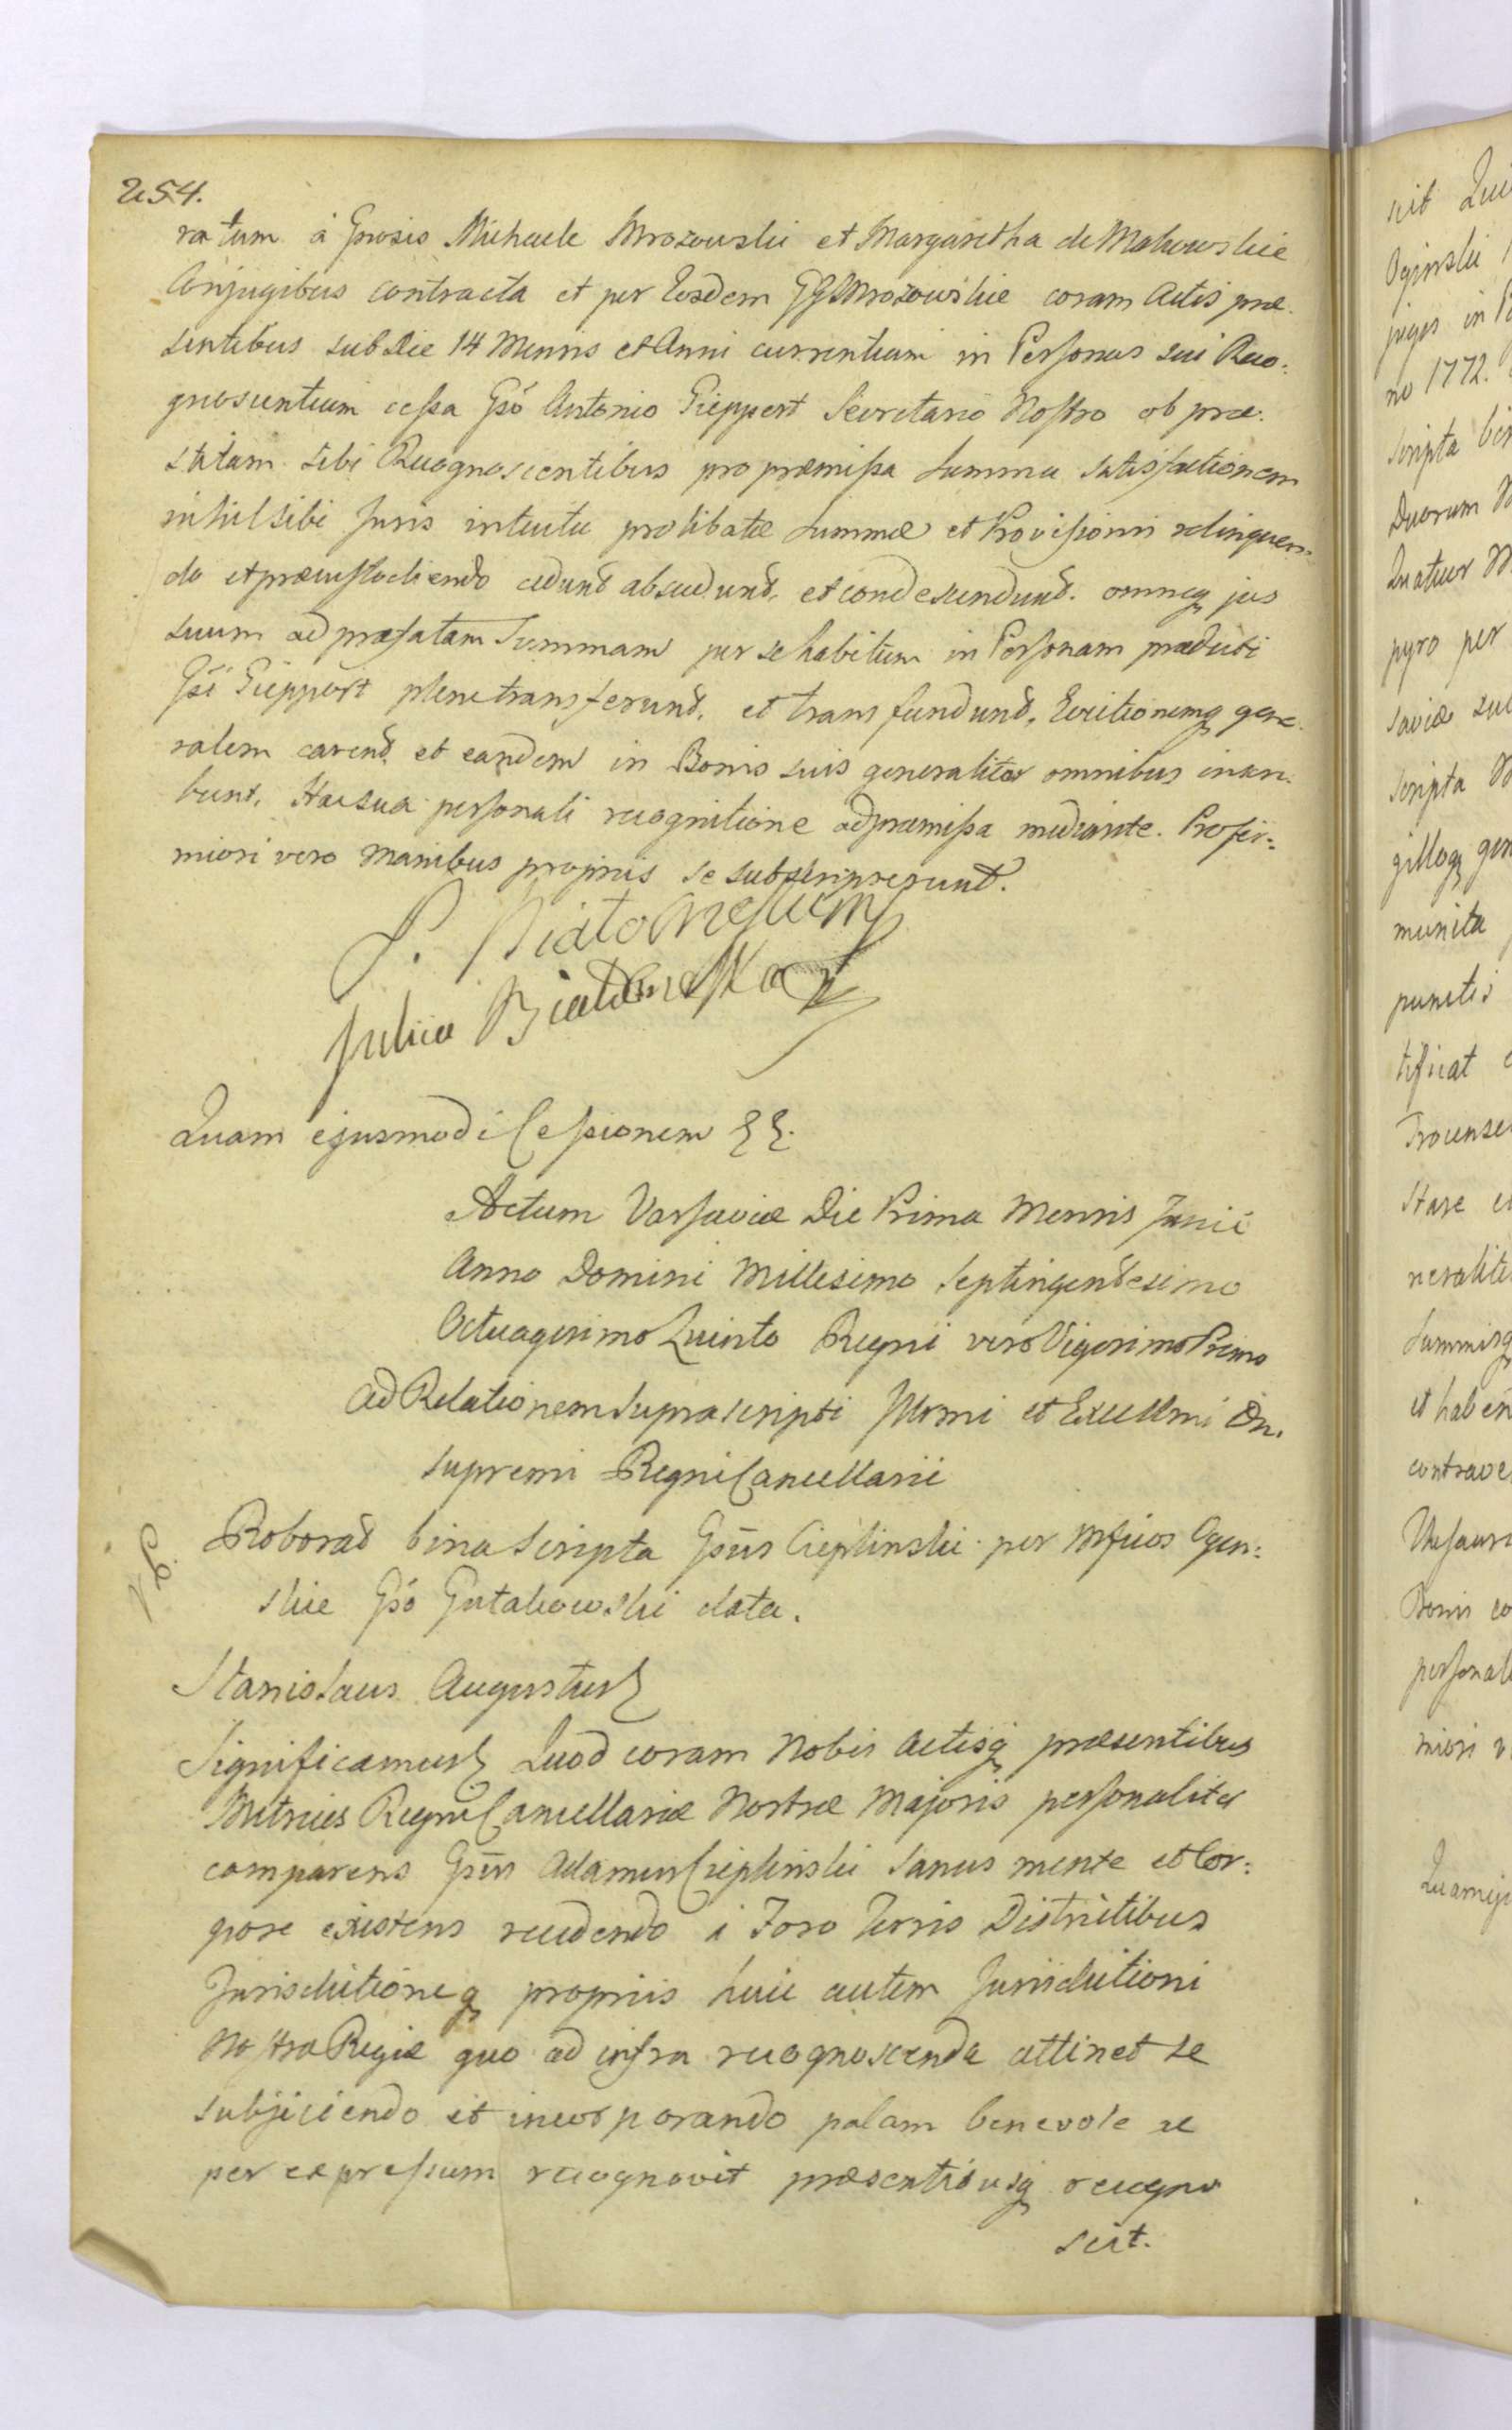 254.
ratum à Gnosis Michaele Mrozowski et Margaretha de Makowskie
Conjugibus contracta et per Eosdem GG Mrozowskie coram Actis præ-
sentibus sub Die 14 Mensis et Anni currentium in Personas sui Reco-
gnoscentium cessa Gsó Antonio Gieppert Secretario Nostro ob præ-
stitam sibi Recognoscentibus pro præmissa Summa satisfactionem
nihil sibi Juris intuitu prolibatæ Summæ et Provisionis relinquen-
do et præcustodiendo cedunt abscedunt, et condescendunt. omneq jus
suum ad præfatam Summam per se habitum in Personam prædicti
Gsi Gieppert plene transferunt, et transfundunt, Evictionemq gene-
ralem cavent et eandem in Bonis suis generaliter omnibus inscri-
bunt. Hac sua personali recognitione ad præmissa mediante. Pro fir-
miori vero Manibus propriis se subscripserunt.
P.
Julia
Quam ejusmodi Cessionem
Actum Varsaviæ Die Prima Mensis Junii
Anno Domini Millesimo Septingentesimo
Octuagesimo Quinto Regni vero Vigesimo Primo
Ad Relationem suprascripti Illmi et Excellmi Dn.
supremi Regni Cancellarii
Roborat bina Scripta Gsus Cieplinski per Mficos Ogin-
skie Gsó Gutakowski data.
Stanislaus Augustus
Significamus Quod coram Nobis Actisq præsentibus
Metrices Regni Cancellariæ Nostræ Majoris personaliter
comparens Gsus Adamus Cieplinski Sanus mente et Cor-
pore existens recedendo à Foro Terris Districtibus
Jurisdictioneq propriis huic autem Jurisdictioni
Nostra Regiæ quo ad infra recognoscenda attinet se
subjiciendo et incorporando palam benevole ac
per expressum recognovit præsentibusq recogno
scit.